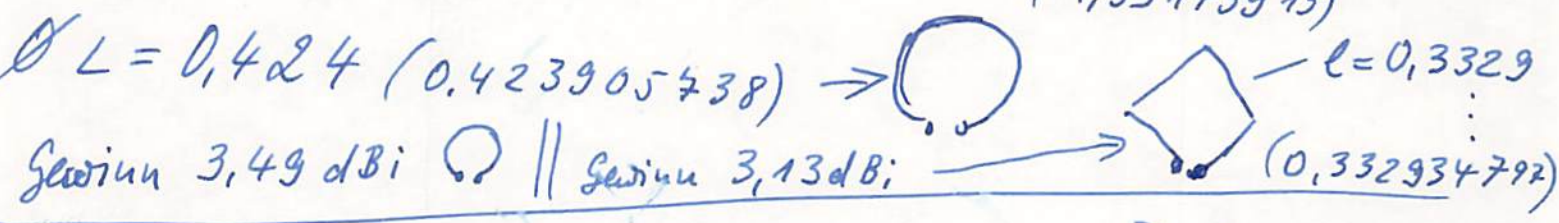 Ø L = 0,424 (0.423905738) → l = 0,3329
Gewinn 3,49 dBi || Gewinn 3,13 dBi → (0,332934797)